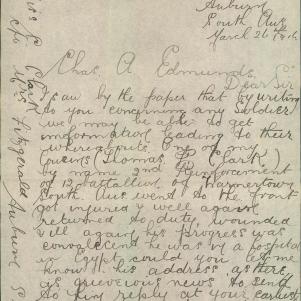 Auburn
South Aus
March 26th
Chas A Edmunds
Dear Sir
I saw by the paper that by writing
to you concerning any Soldier
we may be able to get
information leading to their
whereabouts One of my
Cousins (Thomas P Clark)
by name 2nd Reinforcement
of 12 battallion of
South Aus went to the front
got injured & well again
returned to duty wounded
ill again his progress was
convalescent he was by a hospital
in Egypt could you let me
know his address as there
is grievous news to send
to him reply at your earliest
Miss E Clark
c/o Mrs Fitzgerald Auburn S